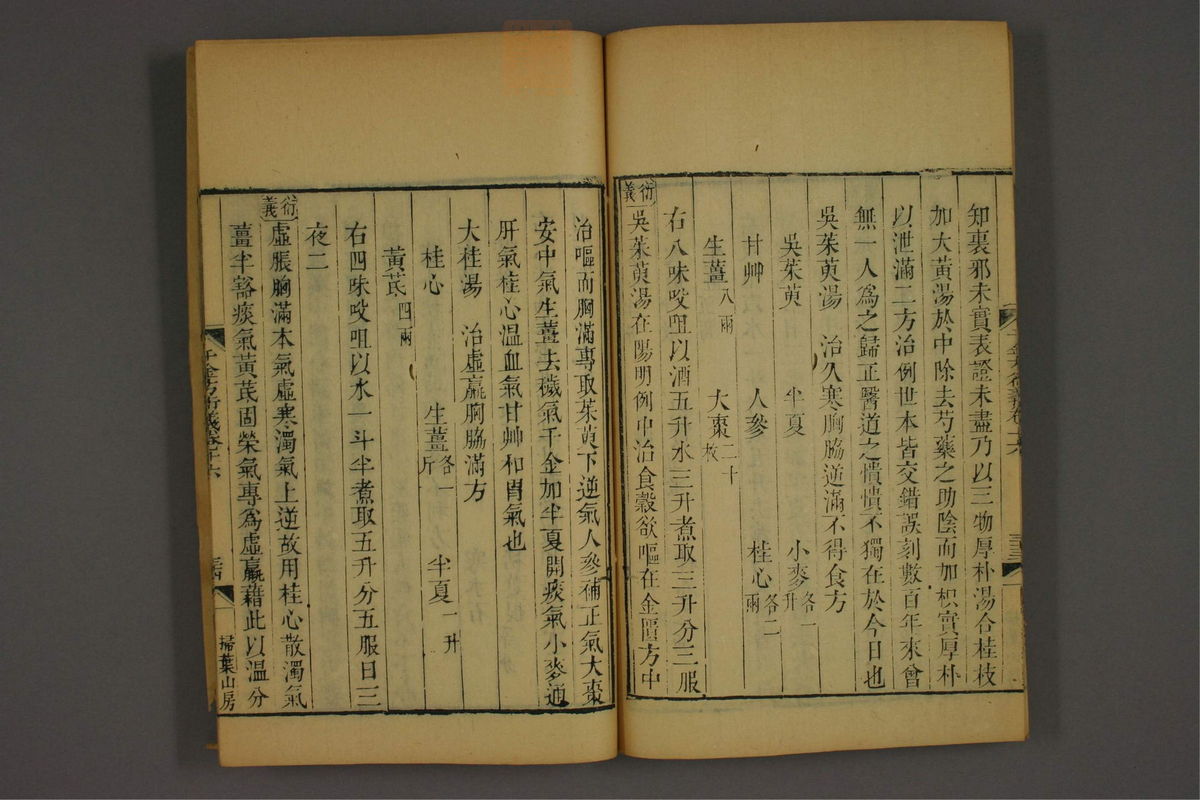 知裏邪未實表證未盡乃以三物厚朴湯合桂枝
加大黃湯於中除去芍藥之助陰而加枳實厚朴
以泄滿二方治例世本皆交錯誤刻數百年來曾
無一人爲之歸正醫道之憒憒不獨在於今日也
吳茱萸湯 治久寒胸脇逆滿不得食方
吳茱萸 半夏 小麥各一升
甘艸 人參 桂心各二兩
生薑八兩 大棗二十枚
右八味㕮咀以酒五升水三升煮取三升分三服
衍義 吳茱萸湯在陽明例中治食穀欲嘔在金匱方中
治嘔而胸滿專取茱萸下逆氣人參補正氣大棗
安中氣生薑去穢氣千金加半夏開痰氣小麥通
肝氣桂心溫血氣甘艸和胃氣也
大桂湯 治虛羸胸脇滿方
桂心 生薑各一斤 半夏一升
黃芪四兩
右四味㕮咀以水一斗半煮取五升分五服日三
夜二
衍義 虛脹胸滿本氣虛寒濁氣上逆故用桂心散濁氣
薑半豁痰氣黃芪固榮氣專爲虛羸藉此以溫分
千金方衍義卷十六
掃葉山房